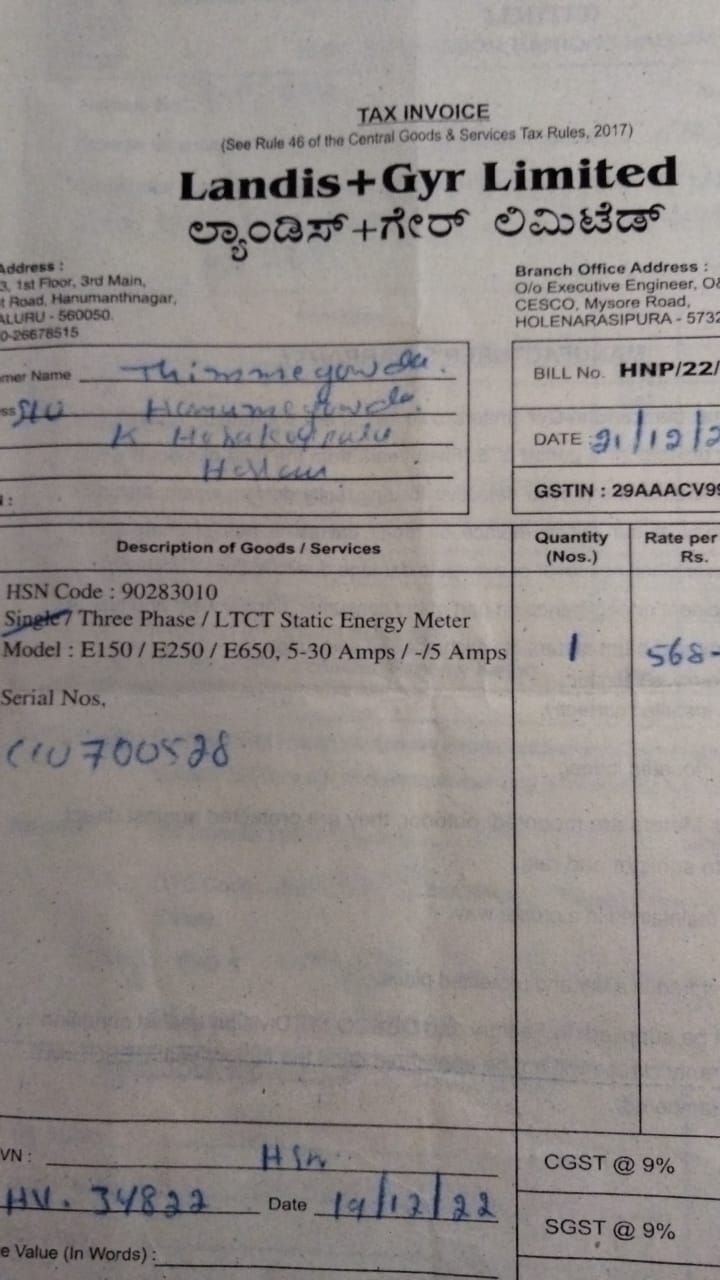 TAX INVOICE
(See Rule 46 of the Central Goods & Services Tax Rules, 2017)
Landis+Gyr Limited
ಲ್ಯಾಂಡಿಸ್+ಗೇರ್ ಲಿಮಿಟೆಡ್
Address :
3, 1st Floor, 3rd Main,
t Road, Hanumanthnagar,
ALURU - 560050.
0-26678515
Branch Office Address :
O/o Executive Engineer, O&
CESCO, Mysore Road,
HOLENARASIPURA - 5732
mer Name Thimmegowda.
ss S/O Hanumegowda.
K
Hassan
BILL No. HNP/22/
DATE : 21/12/2
GSTIN : 29AAACV99
Description of Goods / Services
Quantity (Nos.)
Rate per Rs.
HSN Code : 90283010
Single / Three Phase / LTCT Static Energy Meter
Model : E150 / E250 / E650, 5-30 Amps / -/5 Amps 1 568-
Serial Nos,
700528
VN : HSN
HV. 34822 Date 19/12/22
e Value (In Words) :
CGST @ 9%
SGST @ 9%